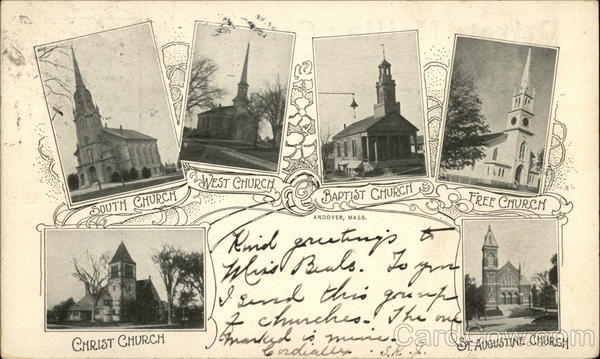 South Church
West Church
Baptist Church
Free Church
Andover, Mass.
Kind greetings to
Miss Beals. To you
I send this group
of churches. The one
marked is mine.
Cordially
Christ Church
St. Augustine Church
CardCow.com